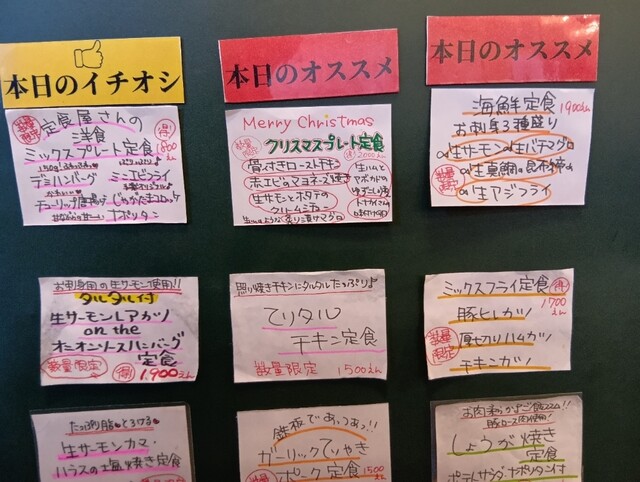 本日のイチオシ
数量限定
定食屋さんの
洋食
ミックスプレート定食
得
1800えん
150g!
デミハンバーグ
ミニエビフライ
チューリップ唐揚げ
じゃがたまコロッケ
ナポリタン
本日のオススメ
Merry Christmas
数量限定
クリスマスプレート定食
得 2000えん
骨付きローストチキン
赤エビのマヨネーズ焼き
生サーモンとホタテの
クリームシチュー
生ハムと
アボカドの
本日のオススメ
海鮮定食
1900えん
お刺身3種盛り
生サーモン
生バチマグロ
数量限定
生真鯛の昆布締め
生アジフライ
お刺身用の生サーモン使用!!
タルタル付
生サーモンレアカツ
on the
オニオンソースハンバーグ
定食
数量限定
得
1,900えん
照り焼きチキンにタルタルたっぷり♪
てりタル
チキン定食
数量限定
1500えん
ミックスフライ定食
得
1700えん
豚ヒレカツ
数量限定
厚切りハムカツ
チキンカツ
たっぷり脂でとろける
生サーモンカマ・
ハラスの塩焼き定食
鉄板であっつあつ!!
ガーリックてりやき
ポーク定食
1500えん
豚ロース肉使用!
しょうが焼き
定食
ポテトサラダ・ナポリタン付